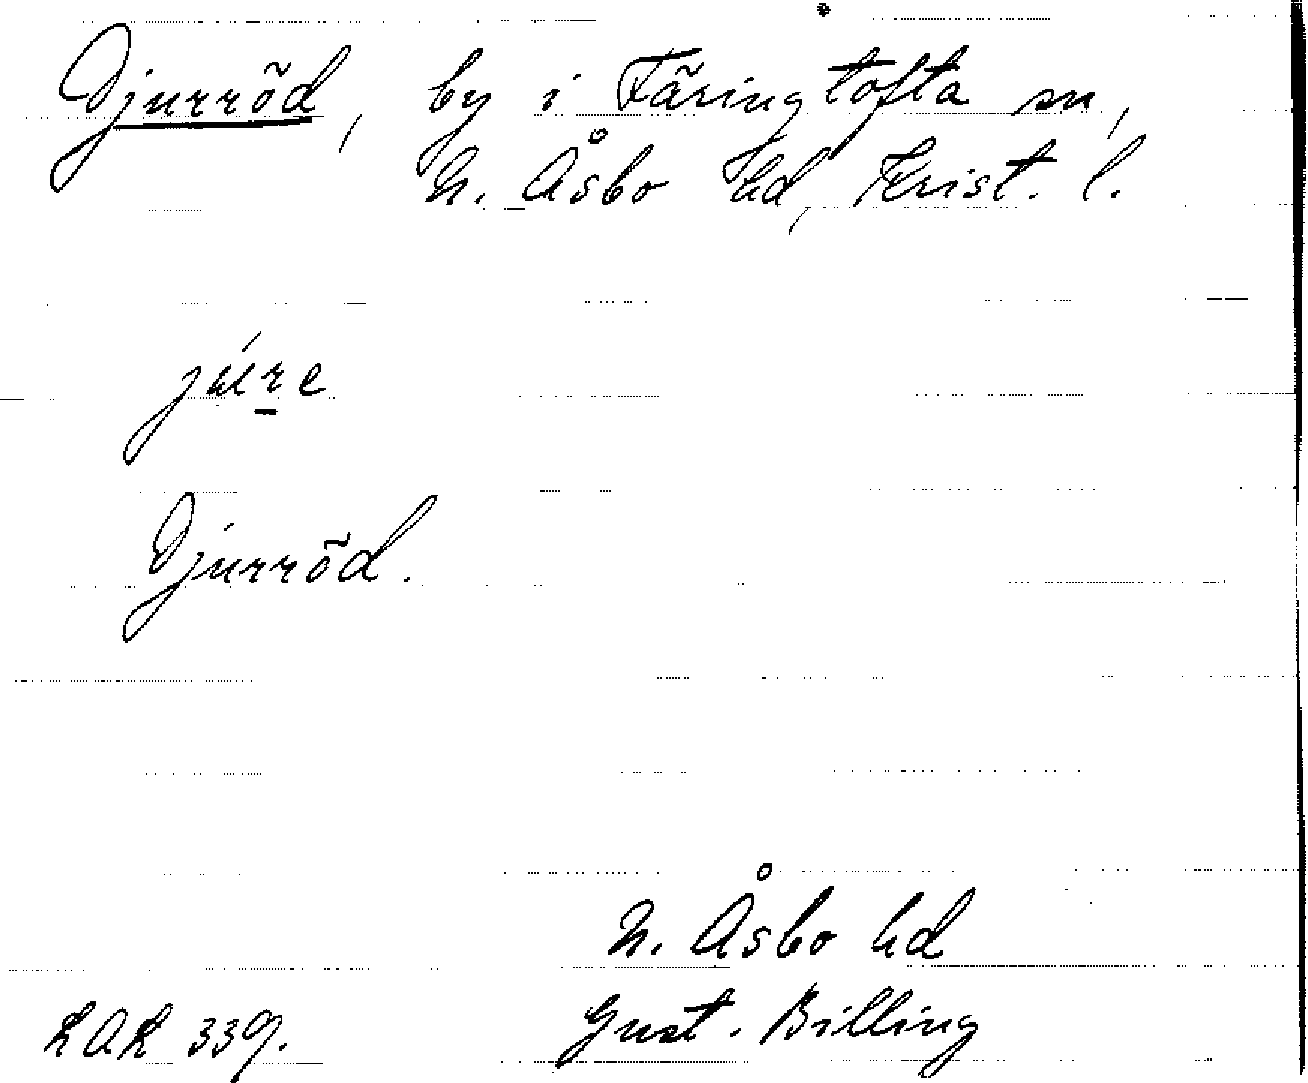 Djurröd, by i Färingtofta sn,
N. Åsbo hd, Krist. l.
Djurröd.
N. Åsbo hd
Gust. Billing
339.